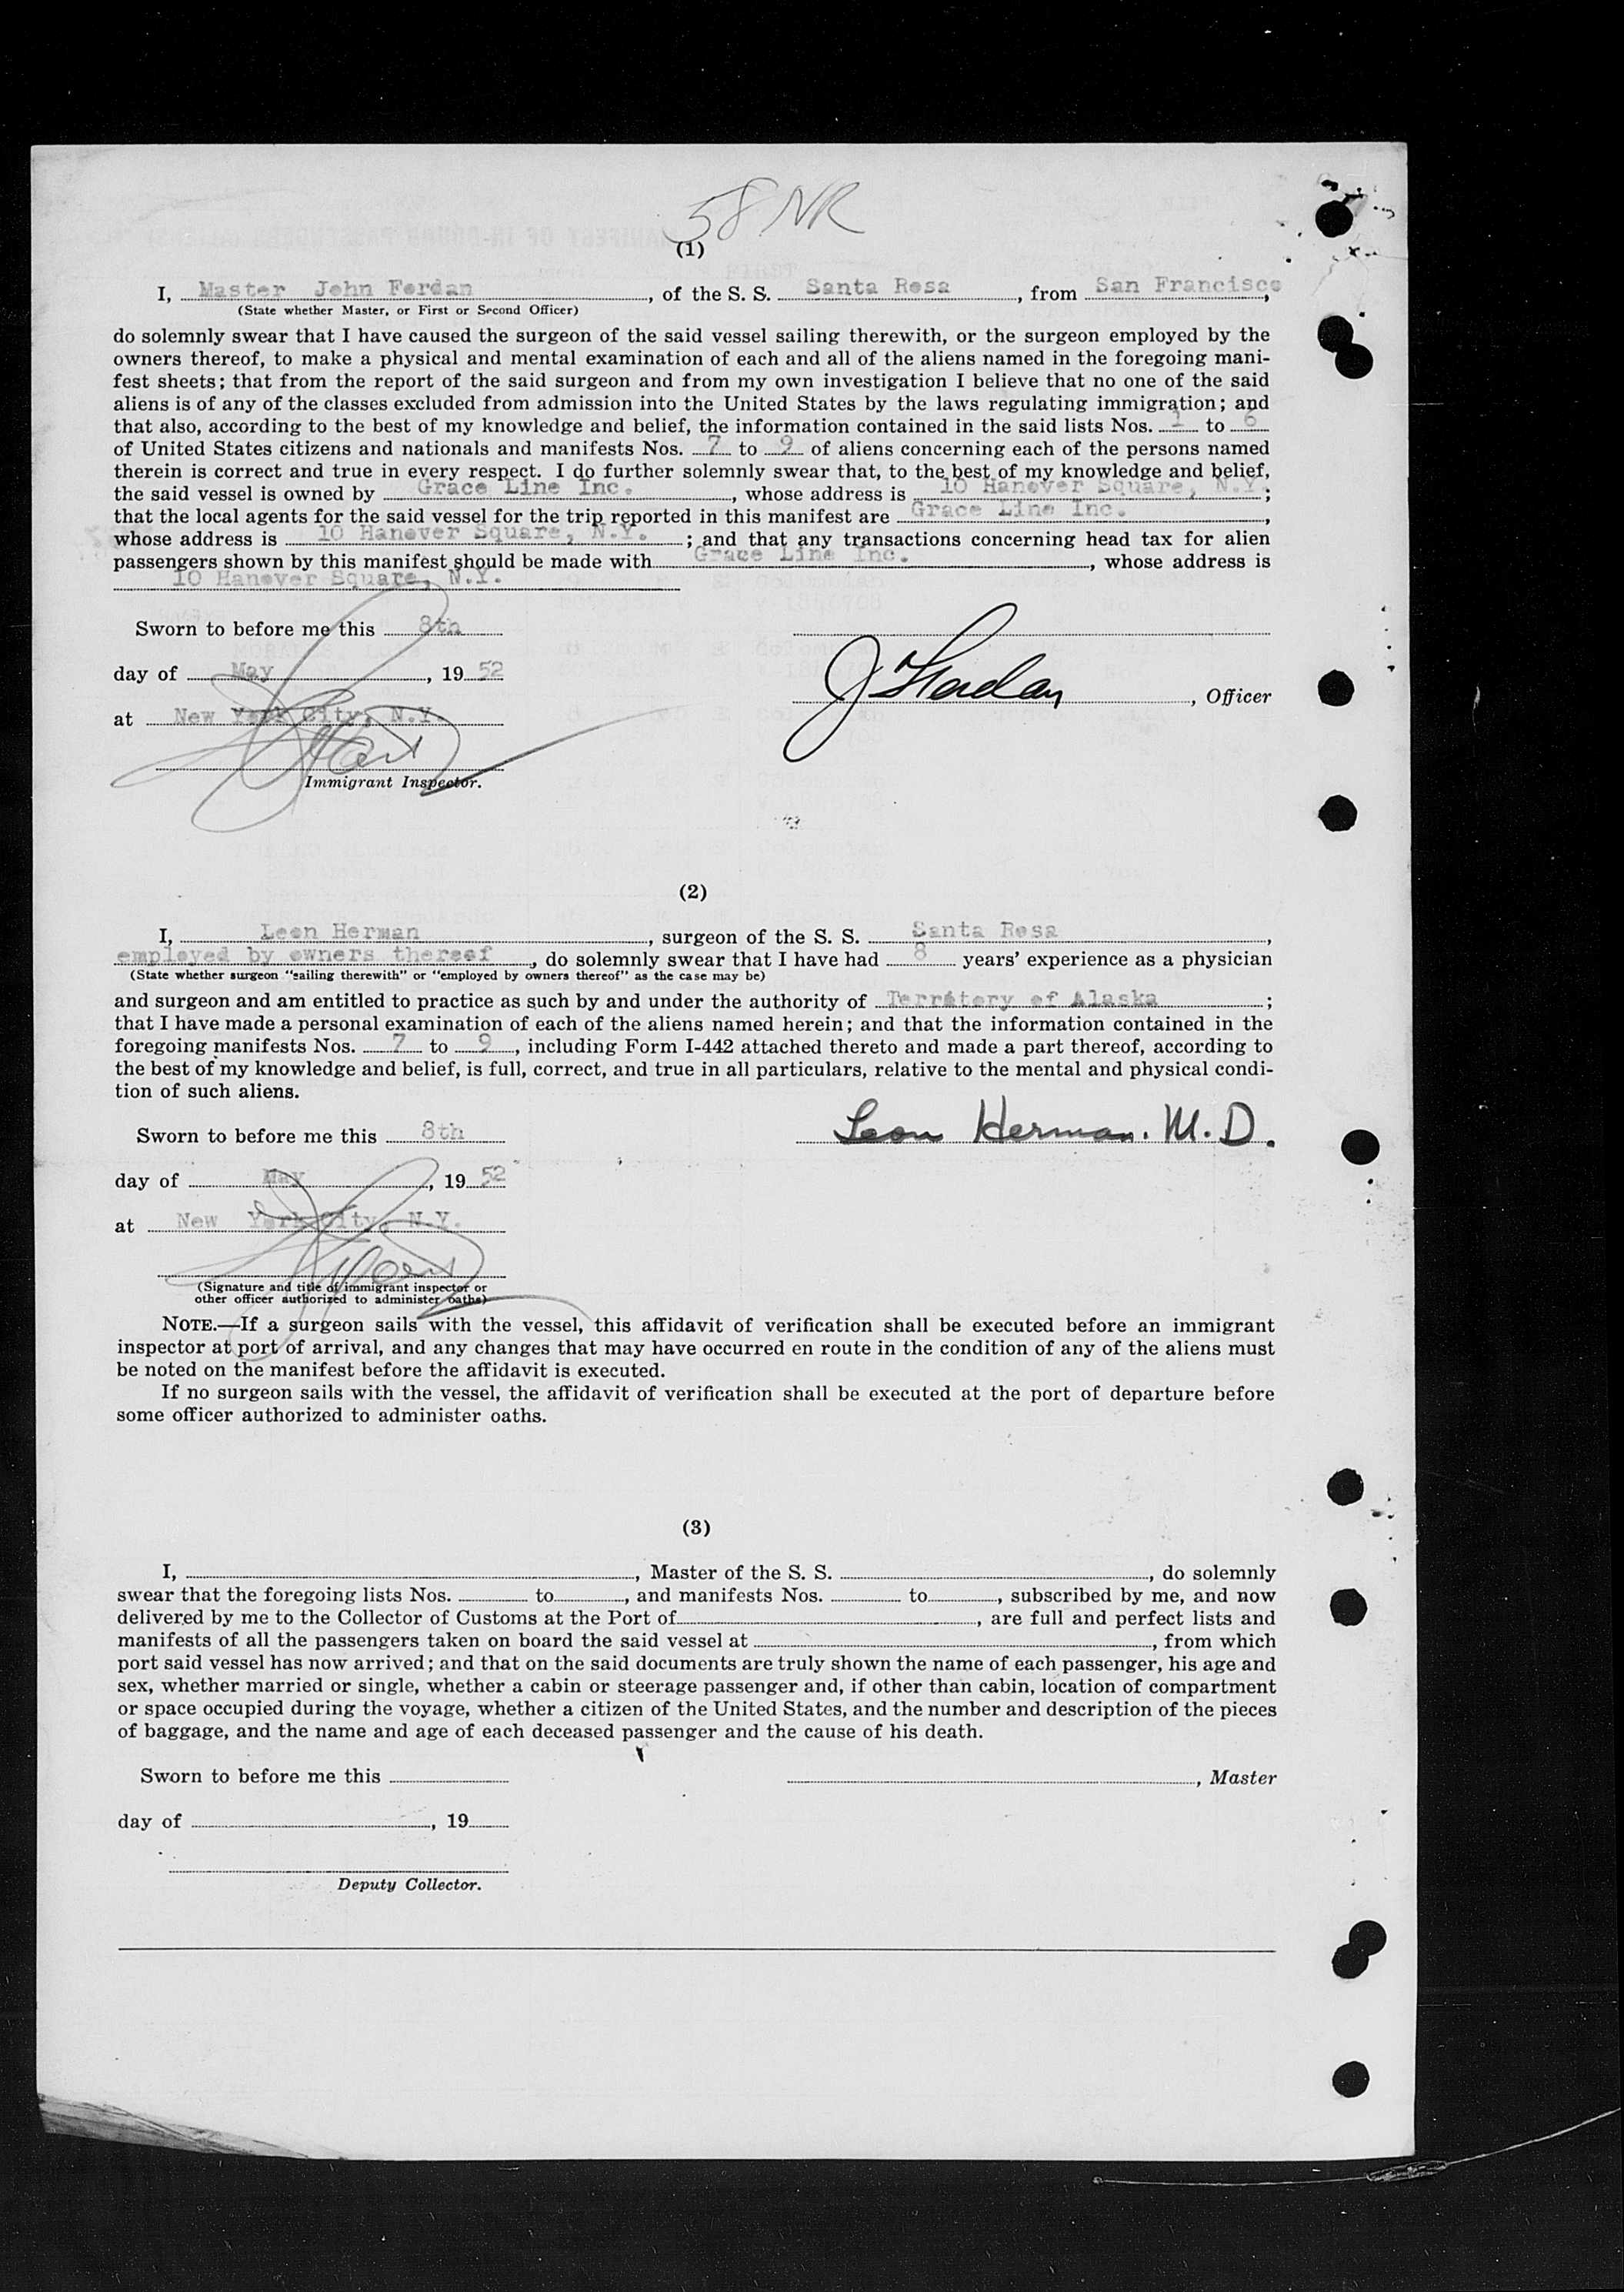 58 NR
(1)
I, Master John Fordan, of the S. S. Santa Rosa, from San Francisco,
(State whether Master, or First or Second Officer)
do solemnly swear that I have caused the surgeon of the said vessel sailing therewith, or the surgeon employed by the
owners thereof, to make a physical and mental examination of each and all of the aliens named in the foregoing mani-
fest sheets; that from the report of the said surgeon and from my own investigation I believe that no one of the said
aliens is of any of the classes excluded from admission into the United States by the laws regulating immigration; and
that also, according to the best of my knowledge and belief, the information contained in the said lists Nos. 1 to 6
of United States citizens and nationals and manifests Nos. 7 to 9 of aliens concerning each of the persons named
therein is correct and true in every respect. I do further solemnly swear that, to the best of my knowledge and belief,
the said vessel is owned by Grace Line Inc., whose address is 10 Hanover Square, N.Y.;
that the local agents for the said vessel for the trip reported in this manifest are Grace Line Inc.,
whose address is 10 Hanover Square, N.Y.; and that any transactions concerning head tax for alien
passengers shown by this manifest should be made with Grace Line Inc., whose address is
10 Hanover Square, N.Y.
Sworn to before me this 8th
day of May, 19 52
J Fordan, Officer
at New York City, N.Y.
Immigrant Inspector.
(2)
I, Leon Herman, surgeon of the S. S. Santa Rosa,
employed by owners thereof, do solemnly swear that I have had 8 years' experience as a physician
(State whether surgeon "sailing therewith" or "employed by owners thereof" as the case may be)
and surgeon and am entitled to practice as such by and under the authority of Territory of Alaska;
that I have made a personal examination of each of the aliens named herein; and that the information contained in the
foregoing manifests Nos. 7 to 9, including Form I-442 attached thereto and made a part thereof, according to
the best of my knowledge and belief, is full, correct, and true in all particulars, relative to the mental and physical condi-
tion of such aliens.
Sworn to before me this 8th
Leon Herman. M.D.
day of May, 19 52
at New York City, N.Y.
(Signature and title of immigrant inspector or
other officer authorized to administer oaths)
NOTE.—If a surgeon sails with the vessel, this affidavit of verification shall be executed before an immigrant
inspector at port of arrival, and any changes that may have occurred en route in the condition of any of the aliens must
be noted on the manifest before the affidavit is executed.
If no surgeon sails with the vessel, the affidavit of verification shall be executed at the port of departure before
some officer authorized to administer oaths.
(3)
I, , Master of the S. S. , do solemnly
swear that the foregoing lists Nos. to , and manifests Nos. to , subscribed by me, and now
delivered by me to the Collector of Customs at the Port of , are full and perfect lists and
manifests of all the passengers taken on board the said vessel at , from which
port said vessel has now arrived; and that on the said documents are truly shown the name of each passenger, his age and
sex, whether married or single, whether a cabin or steerage passenger and, if other than cabin, location of compartment
or space occupied during the voyage, whether a citizen of the United States, and the number and description of the pieces
of baggage, and the name and age of each deceased passenger and the cause of his death.
Sworn to before me this
, Master
day of , 19
Deputy Collector.